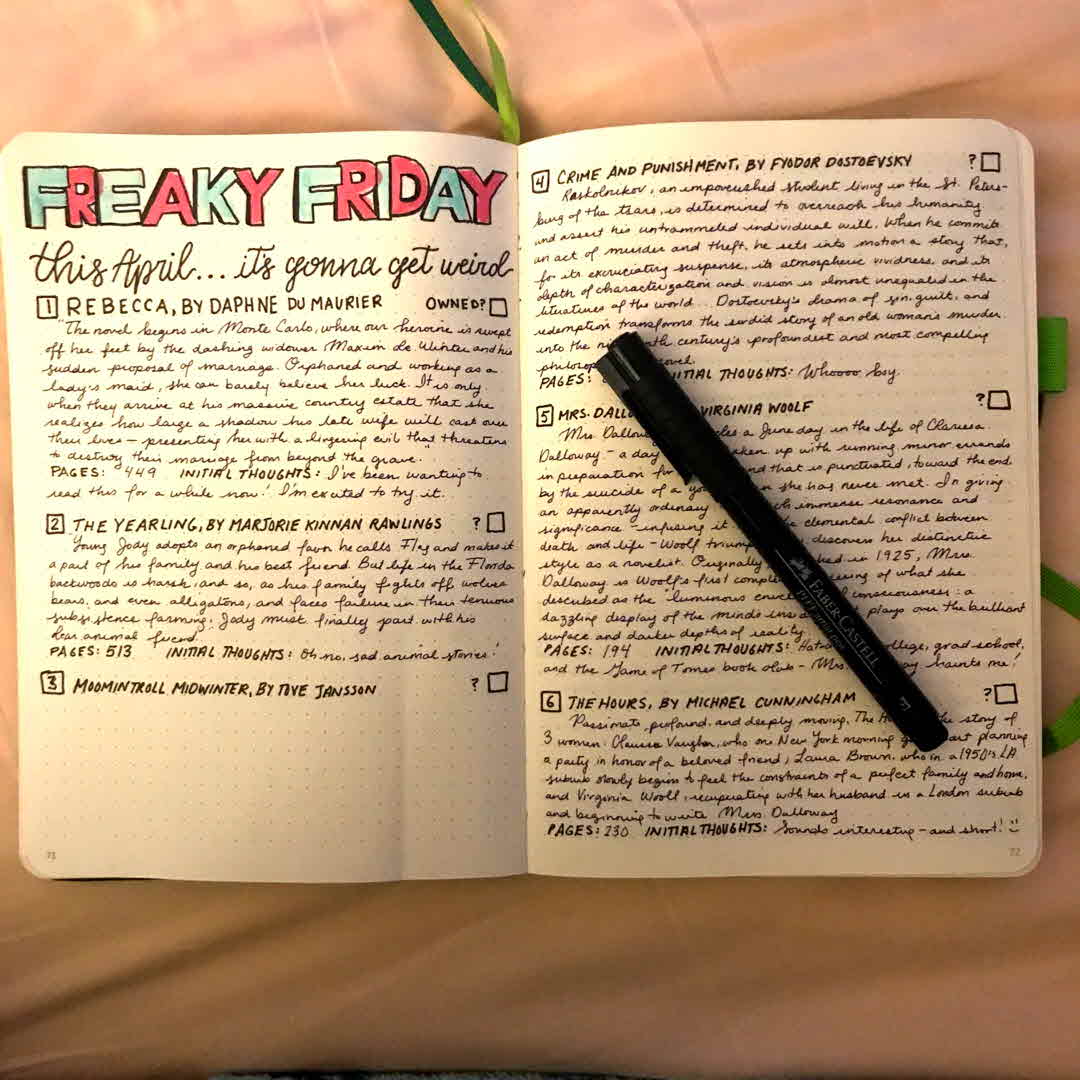 FREAKY FRIDAY
this April... it's gonna get weird
1 REBECCA, BY DAPHNE DU MAURIER OWNED?
"The novel begins in Monte Carlo, where our heroine is swept
off her feet by the dashing widower Maxim de Winter and his
sudden proposal of marriage. Orphaned and working as a
lady's maid, she can barely believe her luck. It is only
when they arrive at his massive country estate that she
realizes how large a shadow his late wife will cast over
their lives – presenting her with a lingering evil that threatens
to destroy their marriage from beyond the grave."
PAGES: 449 INITIAL THOUGHTS: I've been wanting to
read this for a while now! I'm excited to try it.
2 THE YEARLING, BY MARJORIE KINNAN RAWLINGS ?
Young Jody adopts an orphaned fawn he calls Flag and makes it
a part of his family and his best friend. But life in the Florida
backwoods is harsh, and so, as his family fights off wolves
bears, and even alligators, and faces failure in their tenuous
subsistence farming, Jody must finally part with his
dear animal friend.
PAGES: 513 INITIAL THOUGHTS: Oh no, sad animal stories!
3 MOOMINTROLL MIDWINTER, BY TOVE JANSSON ?
73
4 CRIME AND PUNISHMENT, BY FYODOR DOSTOEVSKY ?
Raskolnikov, an impoverished student living in the St. Peters-
burg of the tsars, is determined to overreach his humanity
and assert his untrammeled individual will. When he commits
an act of murder and theft, he sets into motion a story that,
for its excruciating suspense, its atmospheric vividness, and its
depth of characterization and vision is almost unequaled in the
literatures of the world... Dostoevsky's drama of sin, guilt, and
redemption transforms the sordid story of an old woman's murder
into the century's profoundest and most compelling
philosop novel.
PAGES: INITIAL THOUGHTS: Whoooo boy.
5 MRS. DALLO VIRGINIA WOOLF ?
Mrs. Dallow cles a June day in the life of Clarissa
Dalloway – a day aken up with running minor errands
in preparation for and that is punctuated, toward the end,
by the suicide of a yo she has never met. In giving
an apparently ordinary ch immense resonance and
significance – infusing it the elemental conflict between
death and life – Woolf triump discovers her distinctive
style as a novelist. Originally ed in 1925, Mrs.
Dalloway is Woolf's first comple ing of what she
described as the "luminous enve consciousness: a
dazzling display of the minds ins plays over the brilliant
surface and darker depths of reality
PAGES: 194 INITIAL THOUGHTS: ollege, grad school,
and the Game of Tomes book club – Mrs. ay haunts me!
6 THE HOURS, BY MICHAEL CUNNINGHAM ?
Passionate, profound, and deeply moving, The the story of
3 women: Clarissa Vaughan, who one New York morning planning
a party in honor of a beloved friend; Laura Brown, who in a 1950s LA
suburb slowly begins to feel the constraints of a perfect family and home,
and Virginia Woolf, recuperating with her husband in a London suburb
and beginning to write Mrs. Dalloway
PAGES: 230 INITIAL THOUGHTS: Sounds interesting – and short! :)
72
FABER-CASTELL